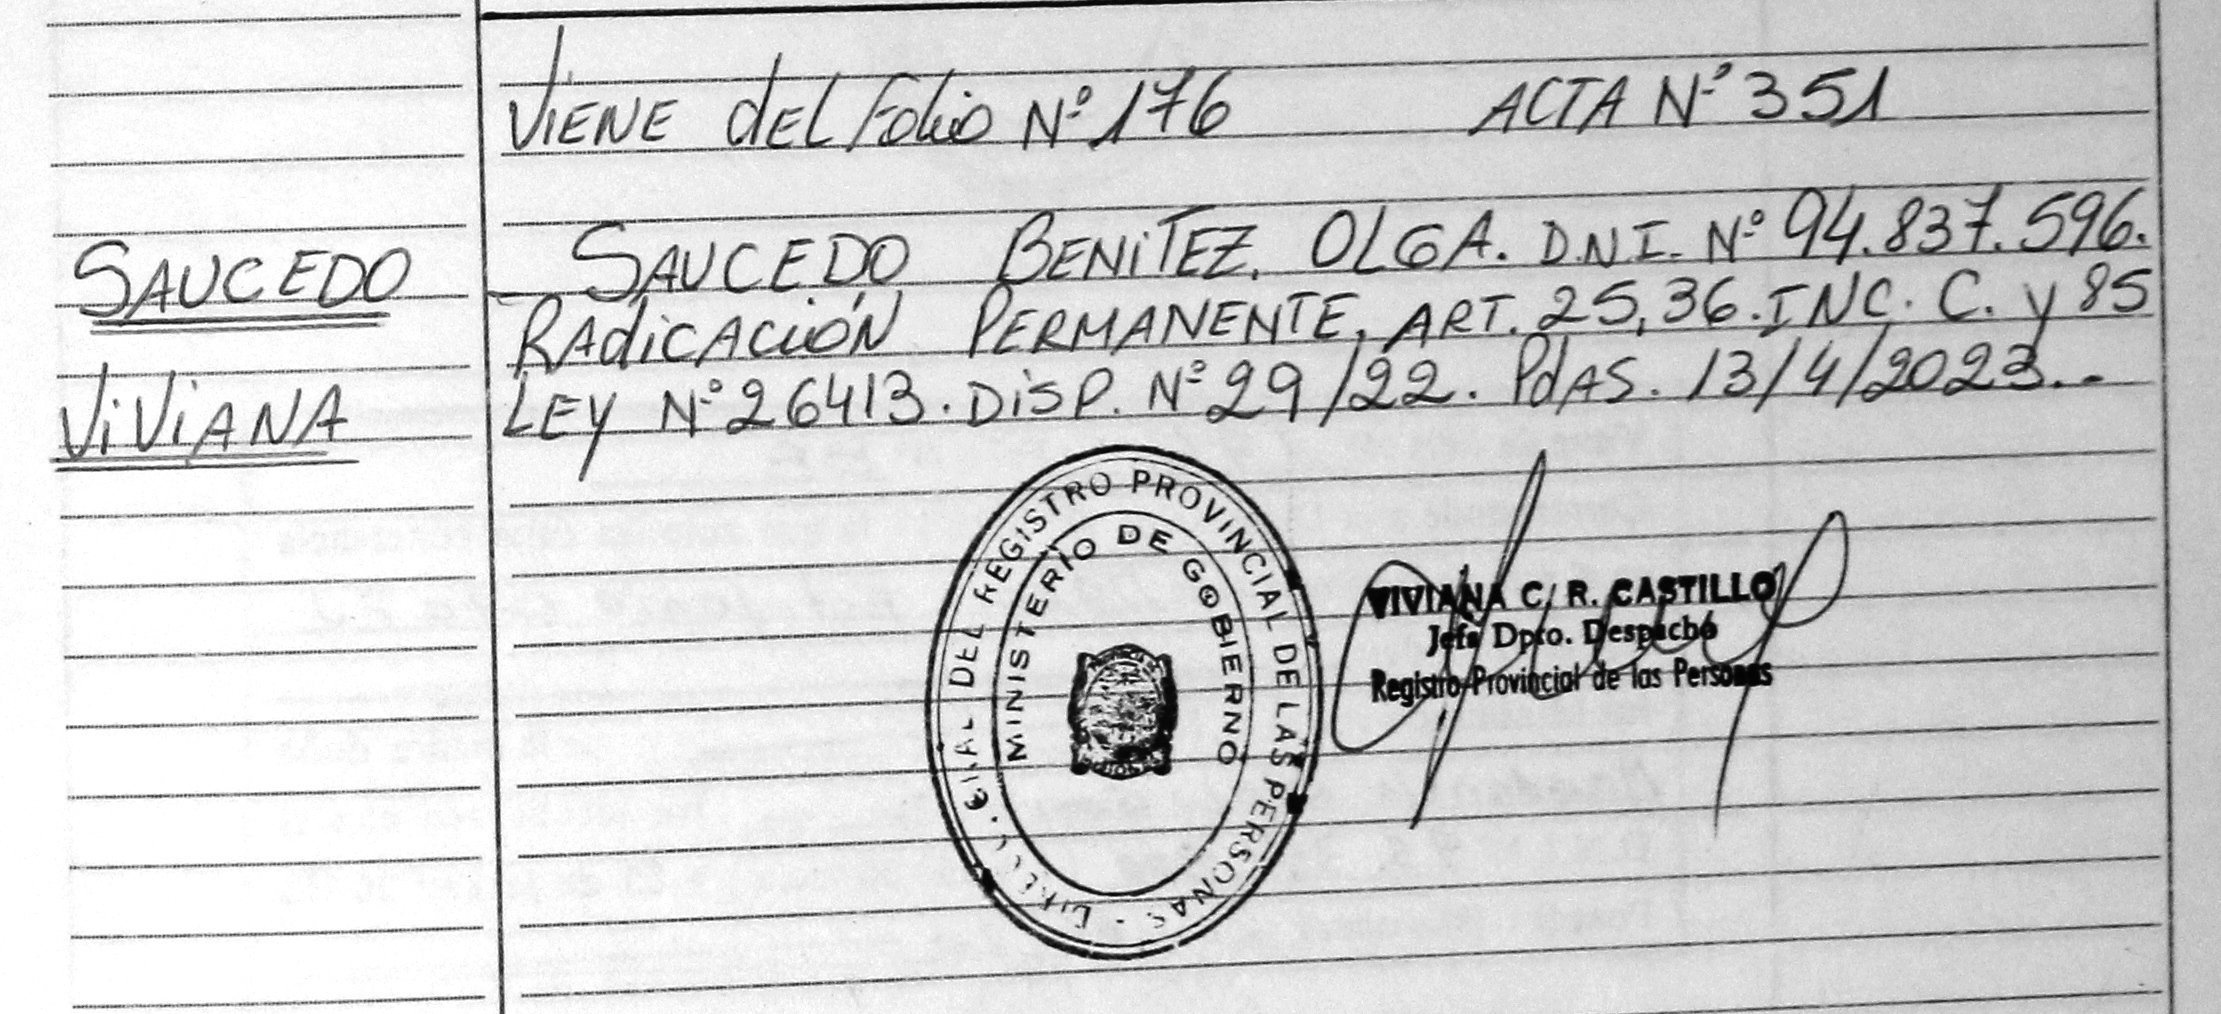 VIENE dEL Folio Nº 176 ACTA Nº 351
SAUCEDO
VIVIANA
SAUCEDO BENITEZ, OLGA. D.N.I. Nº 94.837.596.
RAdiCACIÓN PERMANENTE, ART. 25, 36. INC. C. y 85
LEY Nº 26413. DISP. Nº 29/22. PdAS. 13/4/2023..-
DEL REGISTRO PROVINCIAL DE LAS PERSONAS
MINISTERIO DE GOBIERNO
VIVIANA C. R. CASTILLO
Jefa Dpto. Despacho
Registro Provincial de las Personas